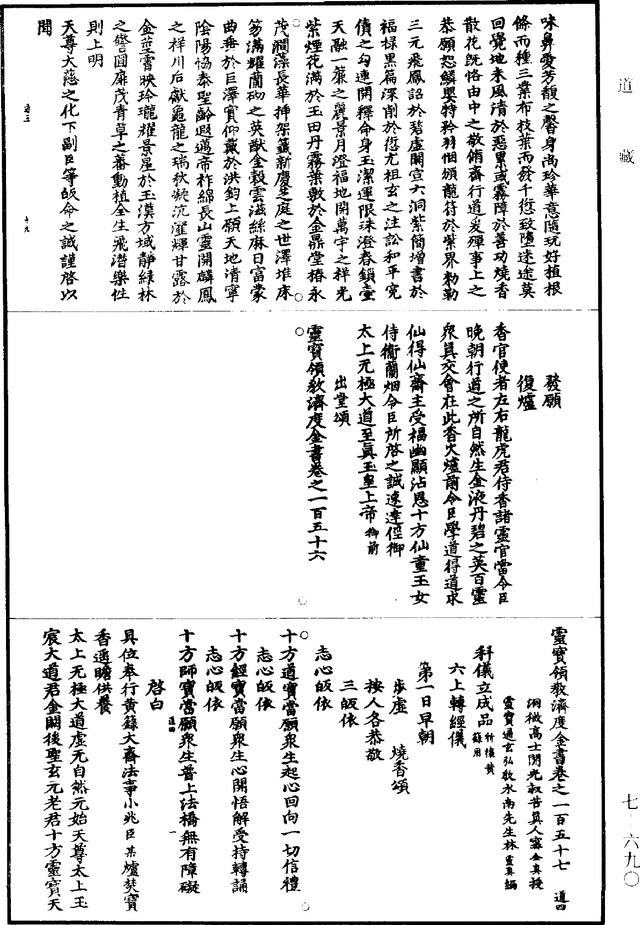 道藏
七·六九〇
味鼻愛芳馥之馨身尚玲華意隨玩好植根
條而種三業布枝葉而發千愆致墮迷途莫
回覺地未風清於惡累或霧障於善功燒香
散花旣恪由中之敬脩齋行道爰殫事上之
恭願恕鱗嬰特矜羽個頒龍符於紫界勑勒
三元飛鳳詔於碧虛開宣六洞紫簡增書於
福祿黑篇深削於愆尤祖玄之注訟和平寃
債之勾連開釋命身玉潔運限珠澄春鎖壺
天融一簾之麗景月澄福地開萬宇之祥光
紫煙花滿於玉田丹霧葉敷於金鼎堂椿永
茂澗藻長華揷架籤新慶芝庭之世澤堆床
笏滿耀蘭砌之英猷金穀雲滋絲麻日富蒙
曲垂於巨澤實仰戴於洪鈞上願天地清寧
陰陽協泰聖齡遐邁帝祚綿長山靈開麟鳳
之祥川后獻龜龍之瑞秋凝沆瀣輝甘露於
金莖霄映玲瓏耀景星於玉漢方域靜綠林
之警囹扉茂青草之蕃動植全生飛潛樂性
則上明
天尊大慈之化下副臣等皈命之誠謹啓以
聞
道三 十九
發願
復爐
香官使者左右龍虎君侍香諸靈官當令臣
晚朝行道之所自然生金液丹碧之英百靈
衆眞交會在此香火爐前令臣學道得道求
仙得仙齋主受福幽顯沾恩十方仙童玉女
侍衞蘭烟令臣所啓之誠速達徑御
太上无極大道至眞玉皇上帝御前
出堂頌
靈寶領教濟度金書卷之一百五十六
靈寶領教濟度金書卷之一百五十七 道四
洞微高士開光救苦眞人甯全眞授
靈寶通玄弘教水南先生林靈眞編
科儀立成品 祈禳黃籙用
六上轉經儀
第一日早朝
步虛 燒香頌
按人各恭敬
三皈依
志心皈依
十方道寶當願衆生起心回向一切信禮
志心皈依
十方經寶當願衆生心開悟解受持轉誦
志心皈依
十方師寶當願衆生普上法橋無有障礙
道四 一
啓白
具位奉行黃籙大齋法事小兆臣某爐焚寶
香遥瞻供養
太上无極大道虛无自然元始天尊太上玉
宸大道君金闕後聖玄元老君十方靈寶天